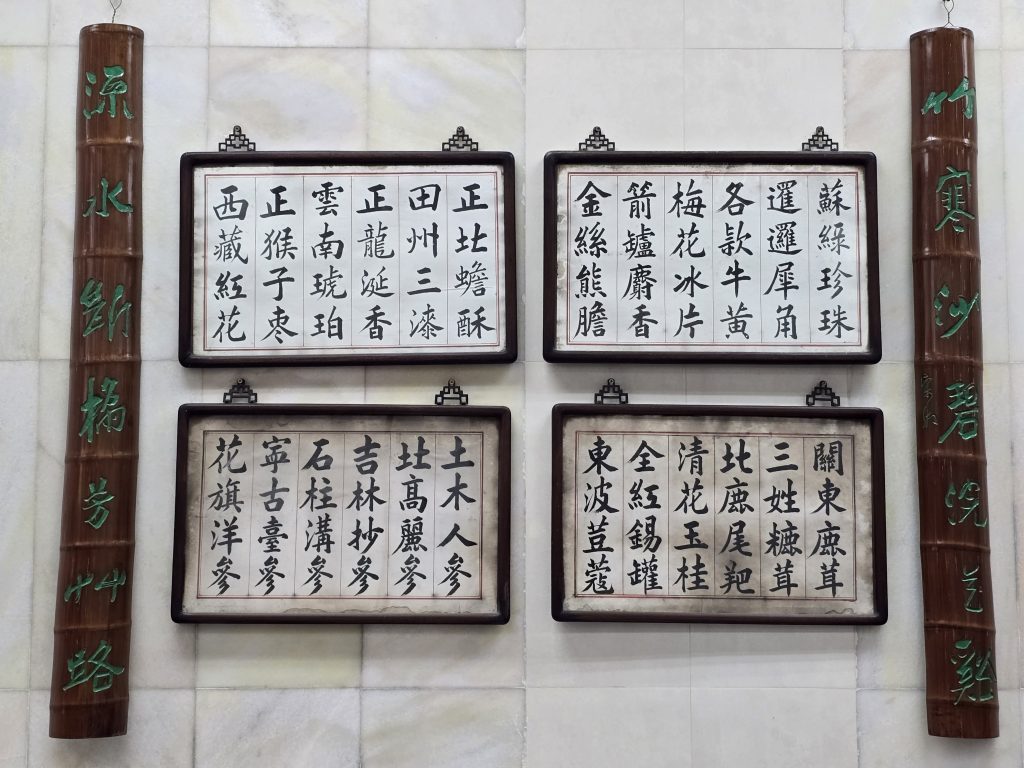 竹寒沙碧浣花谿
蘇綠珍珠
暹邏犀角
各款牛黃
梅花冰片
箭鑪麝香
金絲熊膽
正北蟾酥
田州三漆
正龍涎香
雲南琥珀
正猴子枣
西藏紅花
關東鹿茸
三姓茸
北鹿尾羓
清花玉桂
全紅錫罐
東波荳蔻
土木人參
北髙麗參
吉林抄參
石柱溝參
寧古臺參
花旗洋參
流水斷橋芳艸路